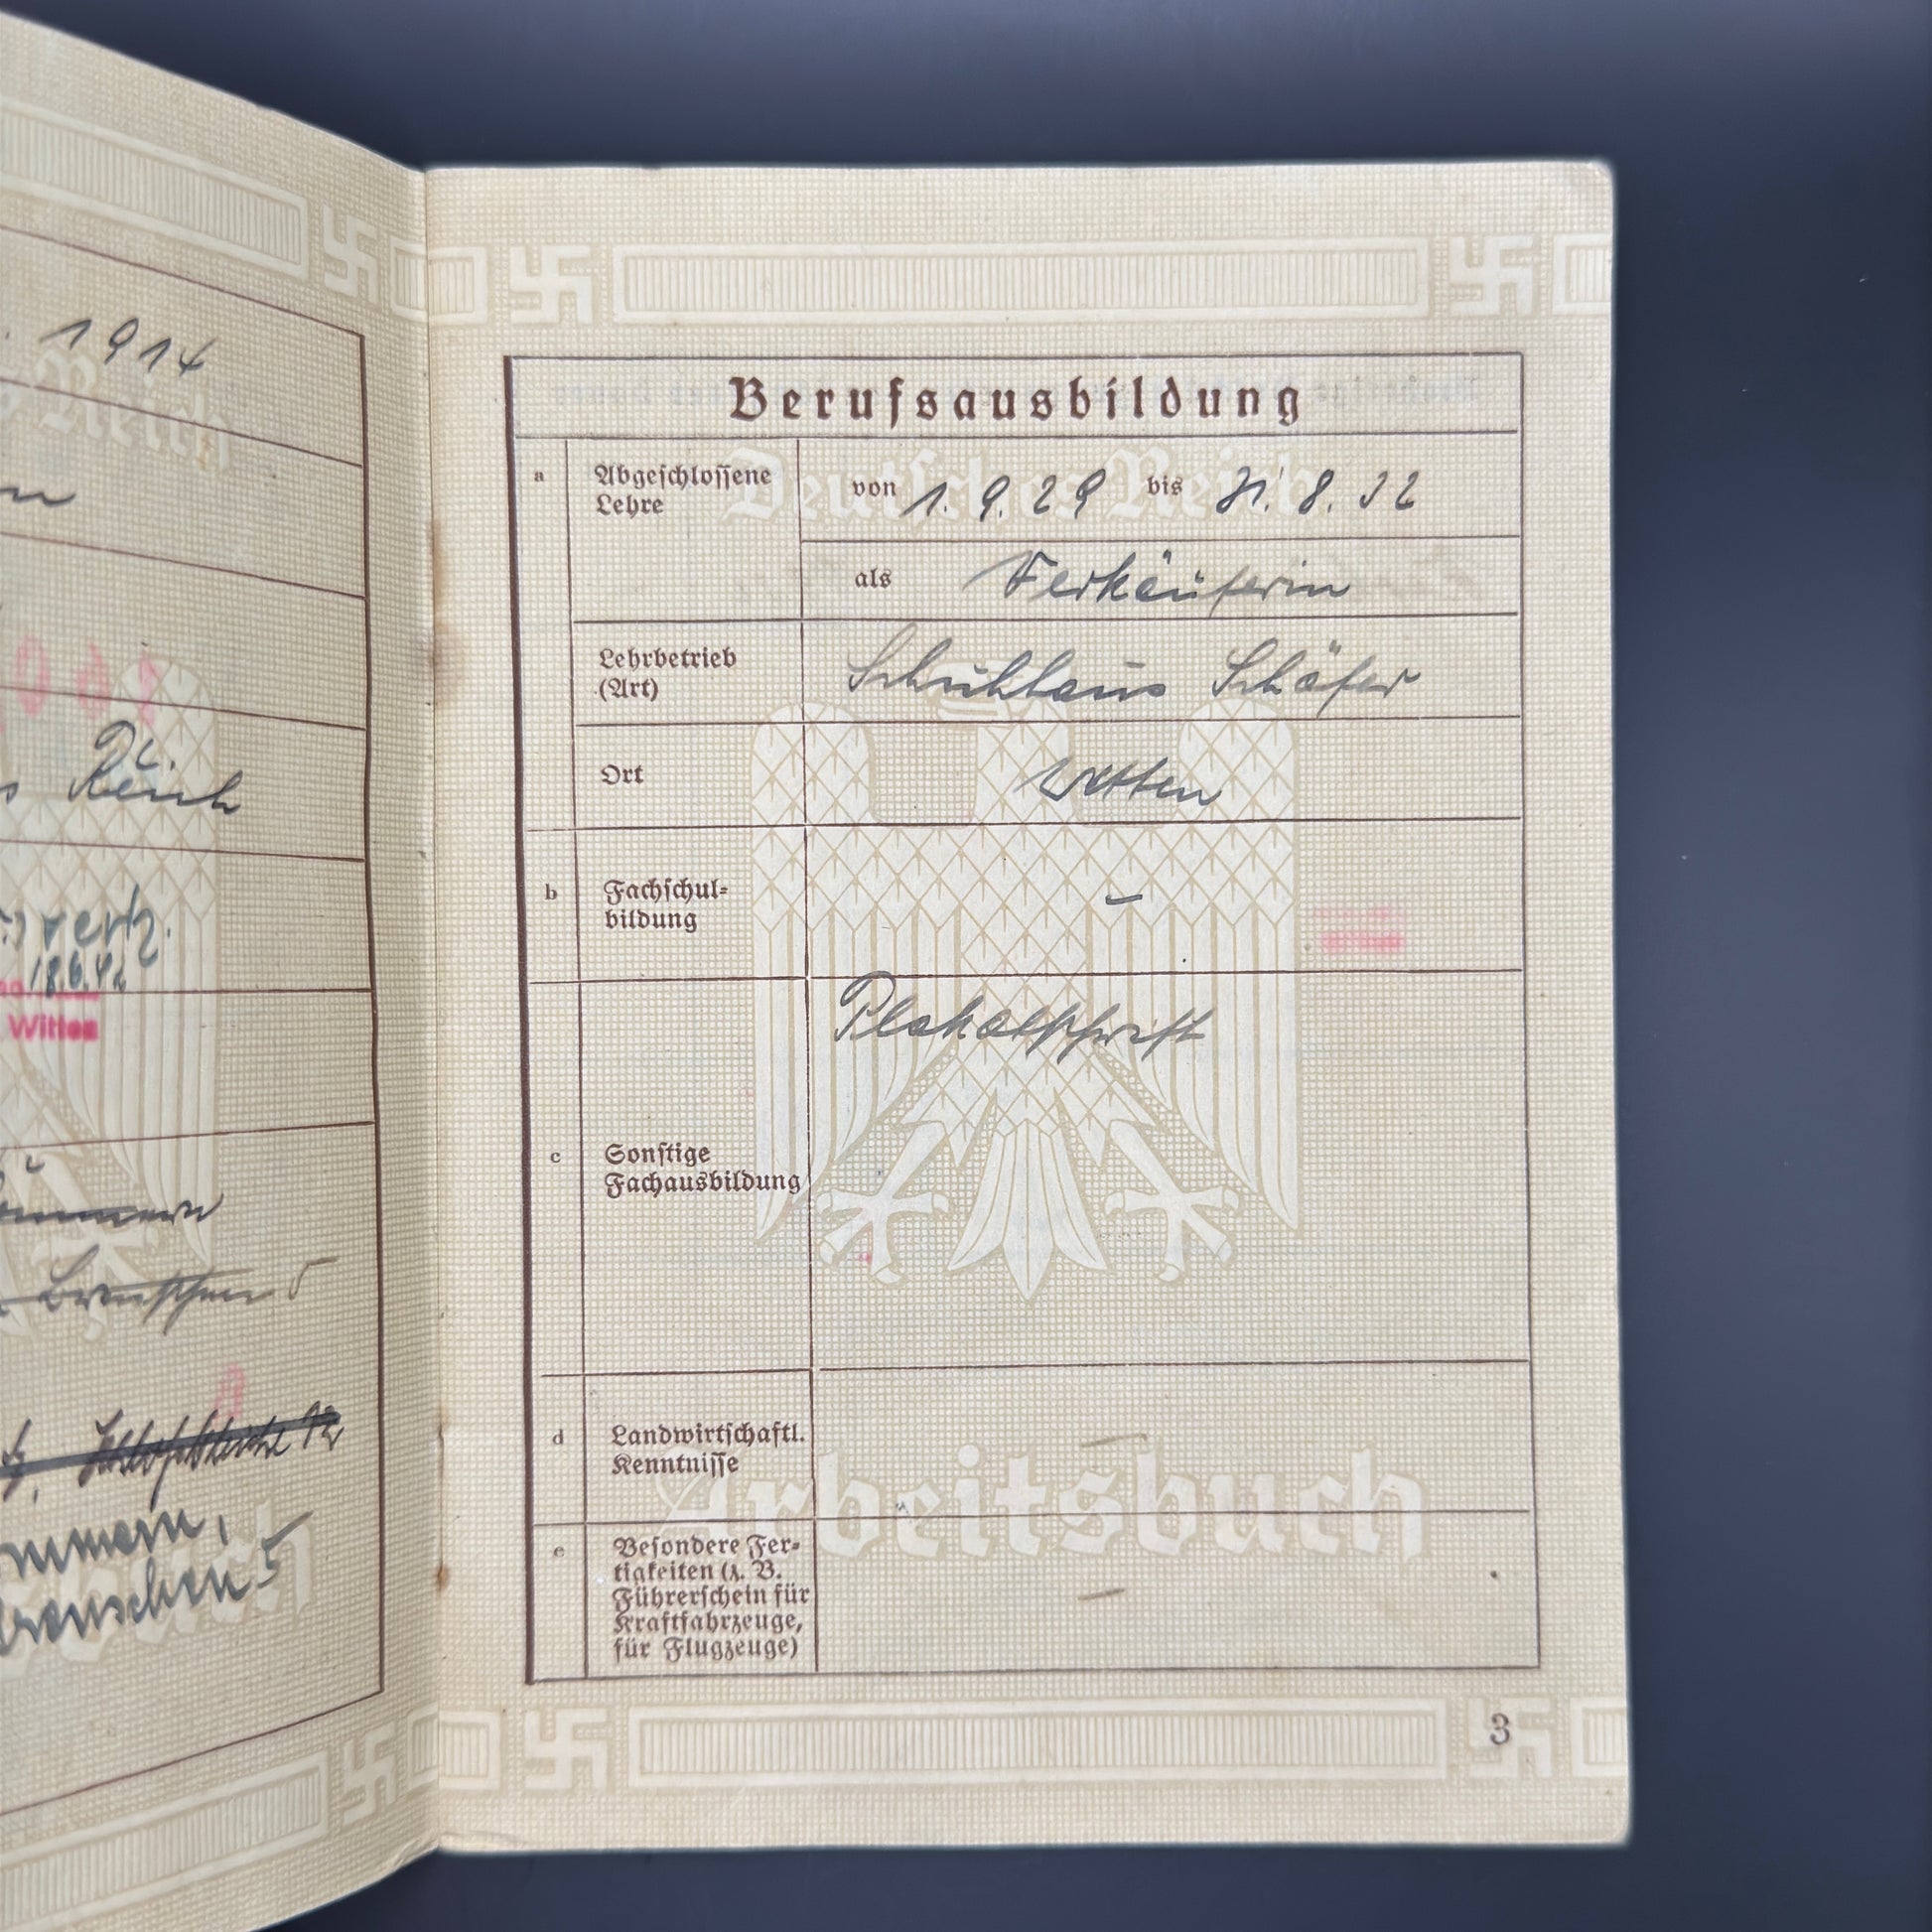 1914
Reich
Dt.
Reich
verh.
18.6.42
Witten
Berufsausbildung
a Abgeschlossene
Lehre
von 1.9.29 bis 31.8.32
als Verkäuferin
Lehrbetrieb
(Art)
Schuhhaus Schäfer
Ort Witten
b Fachschul-
bildung
–
Plakatschrift
c Sonstige
Fachausbildung
d Landwirtschaftl.
Kenntnisse
–
e Besondere Fer-
tigkeiten (z. B.
Führerschein für
Kraftfahrzeuge,
für Flugzeuge)
–
Deutsches Reich
Arbeitsbuch
3